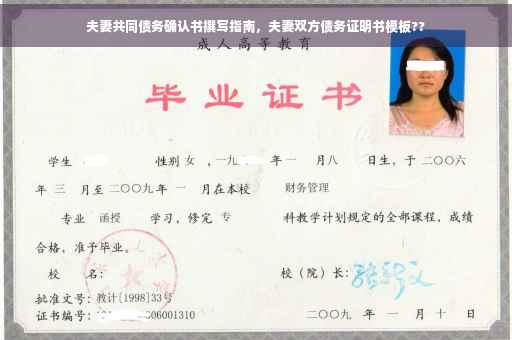 夫妻共同债务确认书撰写指南，夫妻双方债务证明书模板??
成人高等教育
毕业证书
学生 性别 女 ，一九 年 一 月八 日生，于 二〇〇六
年 三 月至 二〇〇九 年 一 月在本校 财务管理
专业 函授 学习，修完 专 科教学计划规定的全部课程，成绩
合格，准予毕业。
校 名： 校（院）长：
批准文号：教计[1998]33号
证书编号： 06001310 二〇〇九 年 一 月 十 日